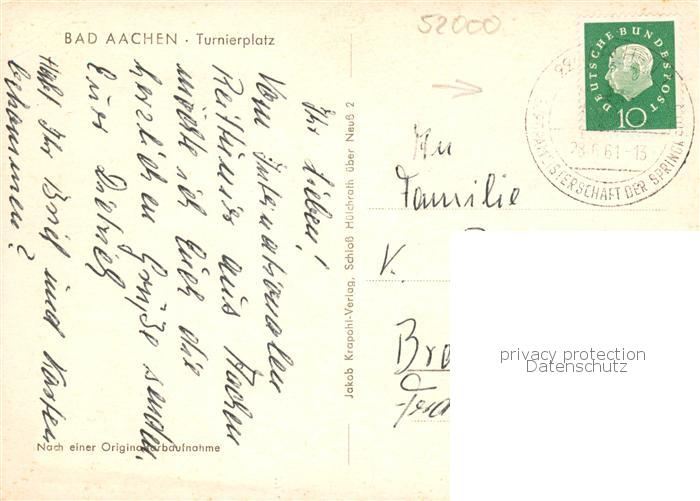 BAD AACHEN · Turnierplatz
Ihr Lieben!
Vom Internationalen
Reitturnier aus Aachen
möchte ich Euch die
herzlichen Grüße senden.
Euer Dietrich
Habt Ihr Brief und Karten
bekommen?
Nach einer Original Farbaufnahme
Jakob Krapohl-Verlag, Schloß Hülchrath über Neuß 2
52000
DEUTSCHE BUNDESPOST
10
28.6.61-13
MEISTERSCHAFT DER SPRING
An
Familie
V.
Bra
privacy protection
Datenschutz